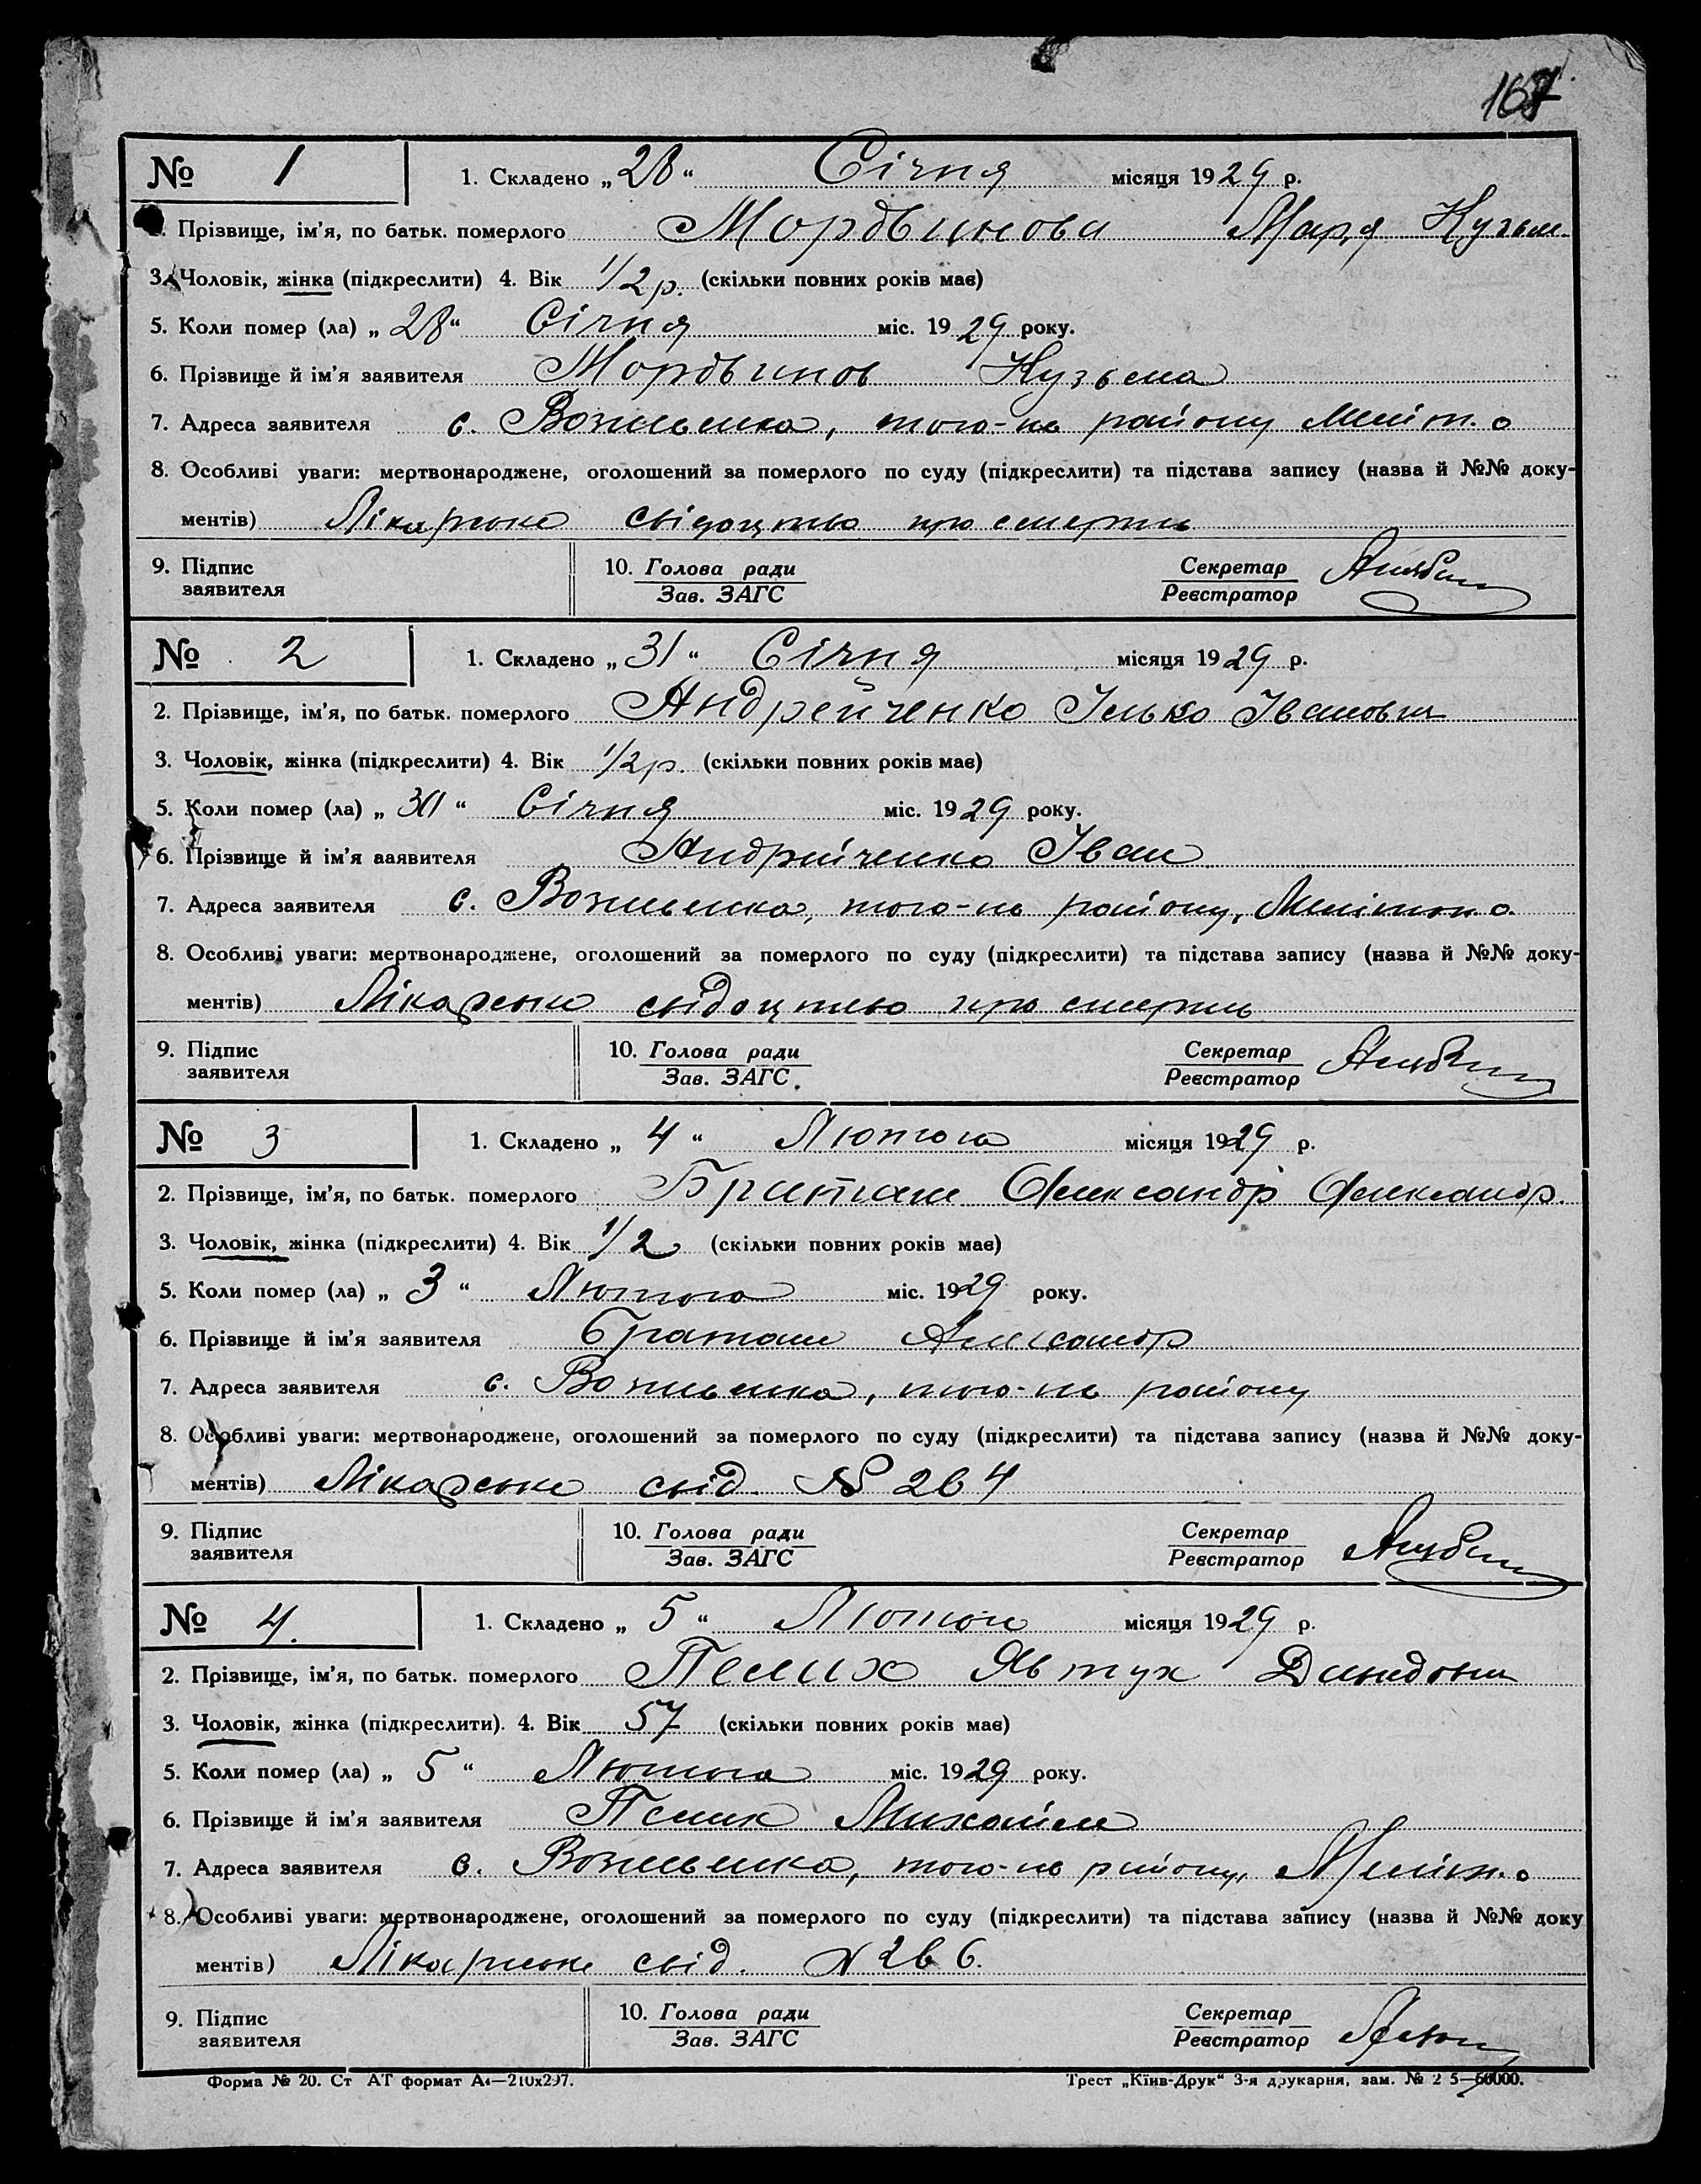 167
№ 1 1. Складено „28“ Січня місяця 1929 р.
2. Прізвище, ім’я, по батьк. померлого Мордвинова Марія Кузьм.
3. Чоловік, жінка (підкреслити) 4. Вік 1/2 р. (скільки повних років має)
5. Коли помер (ла) „28“ Січня міс. 1929 року.
6. Прізвище й ім’я заявителя Мордвинов Кузьма
7. Адреса заявителя с. району
8. Особливі уваги: мертвонароджене, оголошений за померлого по суду (підкреслити) та підстава запису (назва й №№ доку-
ментів) Лікарське свідоцтво про смерть
9. Підпис заявителя 10. Голова ради Зав. ЗАГС Секретар Реєстратор
№ 2 1. Складено „31“ Січня місяця 1929 р.
2. Прізвище, ім’я, по батьк. померлого Андрейченко Ілько Іванович
3. Чоловік, жінка (підкреслити) 4. Вік 1/2 р. (скільки повних років має)
5. Коли помер (ла) „ “ Січня міс. 1929 року.
6. Прізвище й ім’я заявителя Андрейченко Іван
7. Адреса заявителя с. району,
8. Особливі уваги: мертвонароджене, оголошений за померлого по суду (підкреслити) та підстава запису (назва й №№ доку-
ментів) Лікарське свідоцтво про смерть
9. Підпис заявителя 10. Голова ради Зав. ЗАГС. Секретар Реєстратор
№ 3 1. Складено „4“ Лютого місяця 1929 р.
2. Прізвище, ім’я, по батьк. померлого Браташ Олександр Олександр.
3. Чоловік, жінка (підкреслити) 4. Вік 1/2 (скільки повних років має)
5. Коли помер (ла) „3“ Лютого міс. 1929 року.
6. Прізвище й ім’я заявителя Браташ Александр
7. Адреса заявителя с. району
8. Особливі уваги: мертвонароджене, оголошений за померлого по суду (підкреслити) та підстава запису (назва й №№ доку-
ментів) Лікарське свід. № 264
9. Підпис заявителя 10. Голова ради Зав. ЗАГС Секретар Реєстратор
№ 4. 1. Складено „5“ Лютого місяця 1929 р.
2. Прізвище, ім’я, по батьк. померлого Пелих Явтух Давидович
3. Чоловік, жінка (підкреслити). 4. Вік 57 (скільки повних років має)
5. Коли помер (ла) „5“ Лютого міс. 1929 року.
6. Прізвище й ім’я заявителя Пелих Михайло
7. Адреса заявителя с. району,
8. Особливі уваги: мертвонароджене, оголошений за померлого по суду (підкреслити) та підстава запису (назва й №№ доку
ментів) Лікарське свід. № 266.
9. Підпис заявителя 10. Голова ради Зав. ЗАГС Секретар Реєстратор
Форма № 20. Ст АТ формат А4—210х297. Трест „Київ-Друк“ 3-я друкарня, зам. №